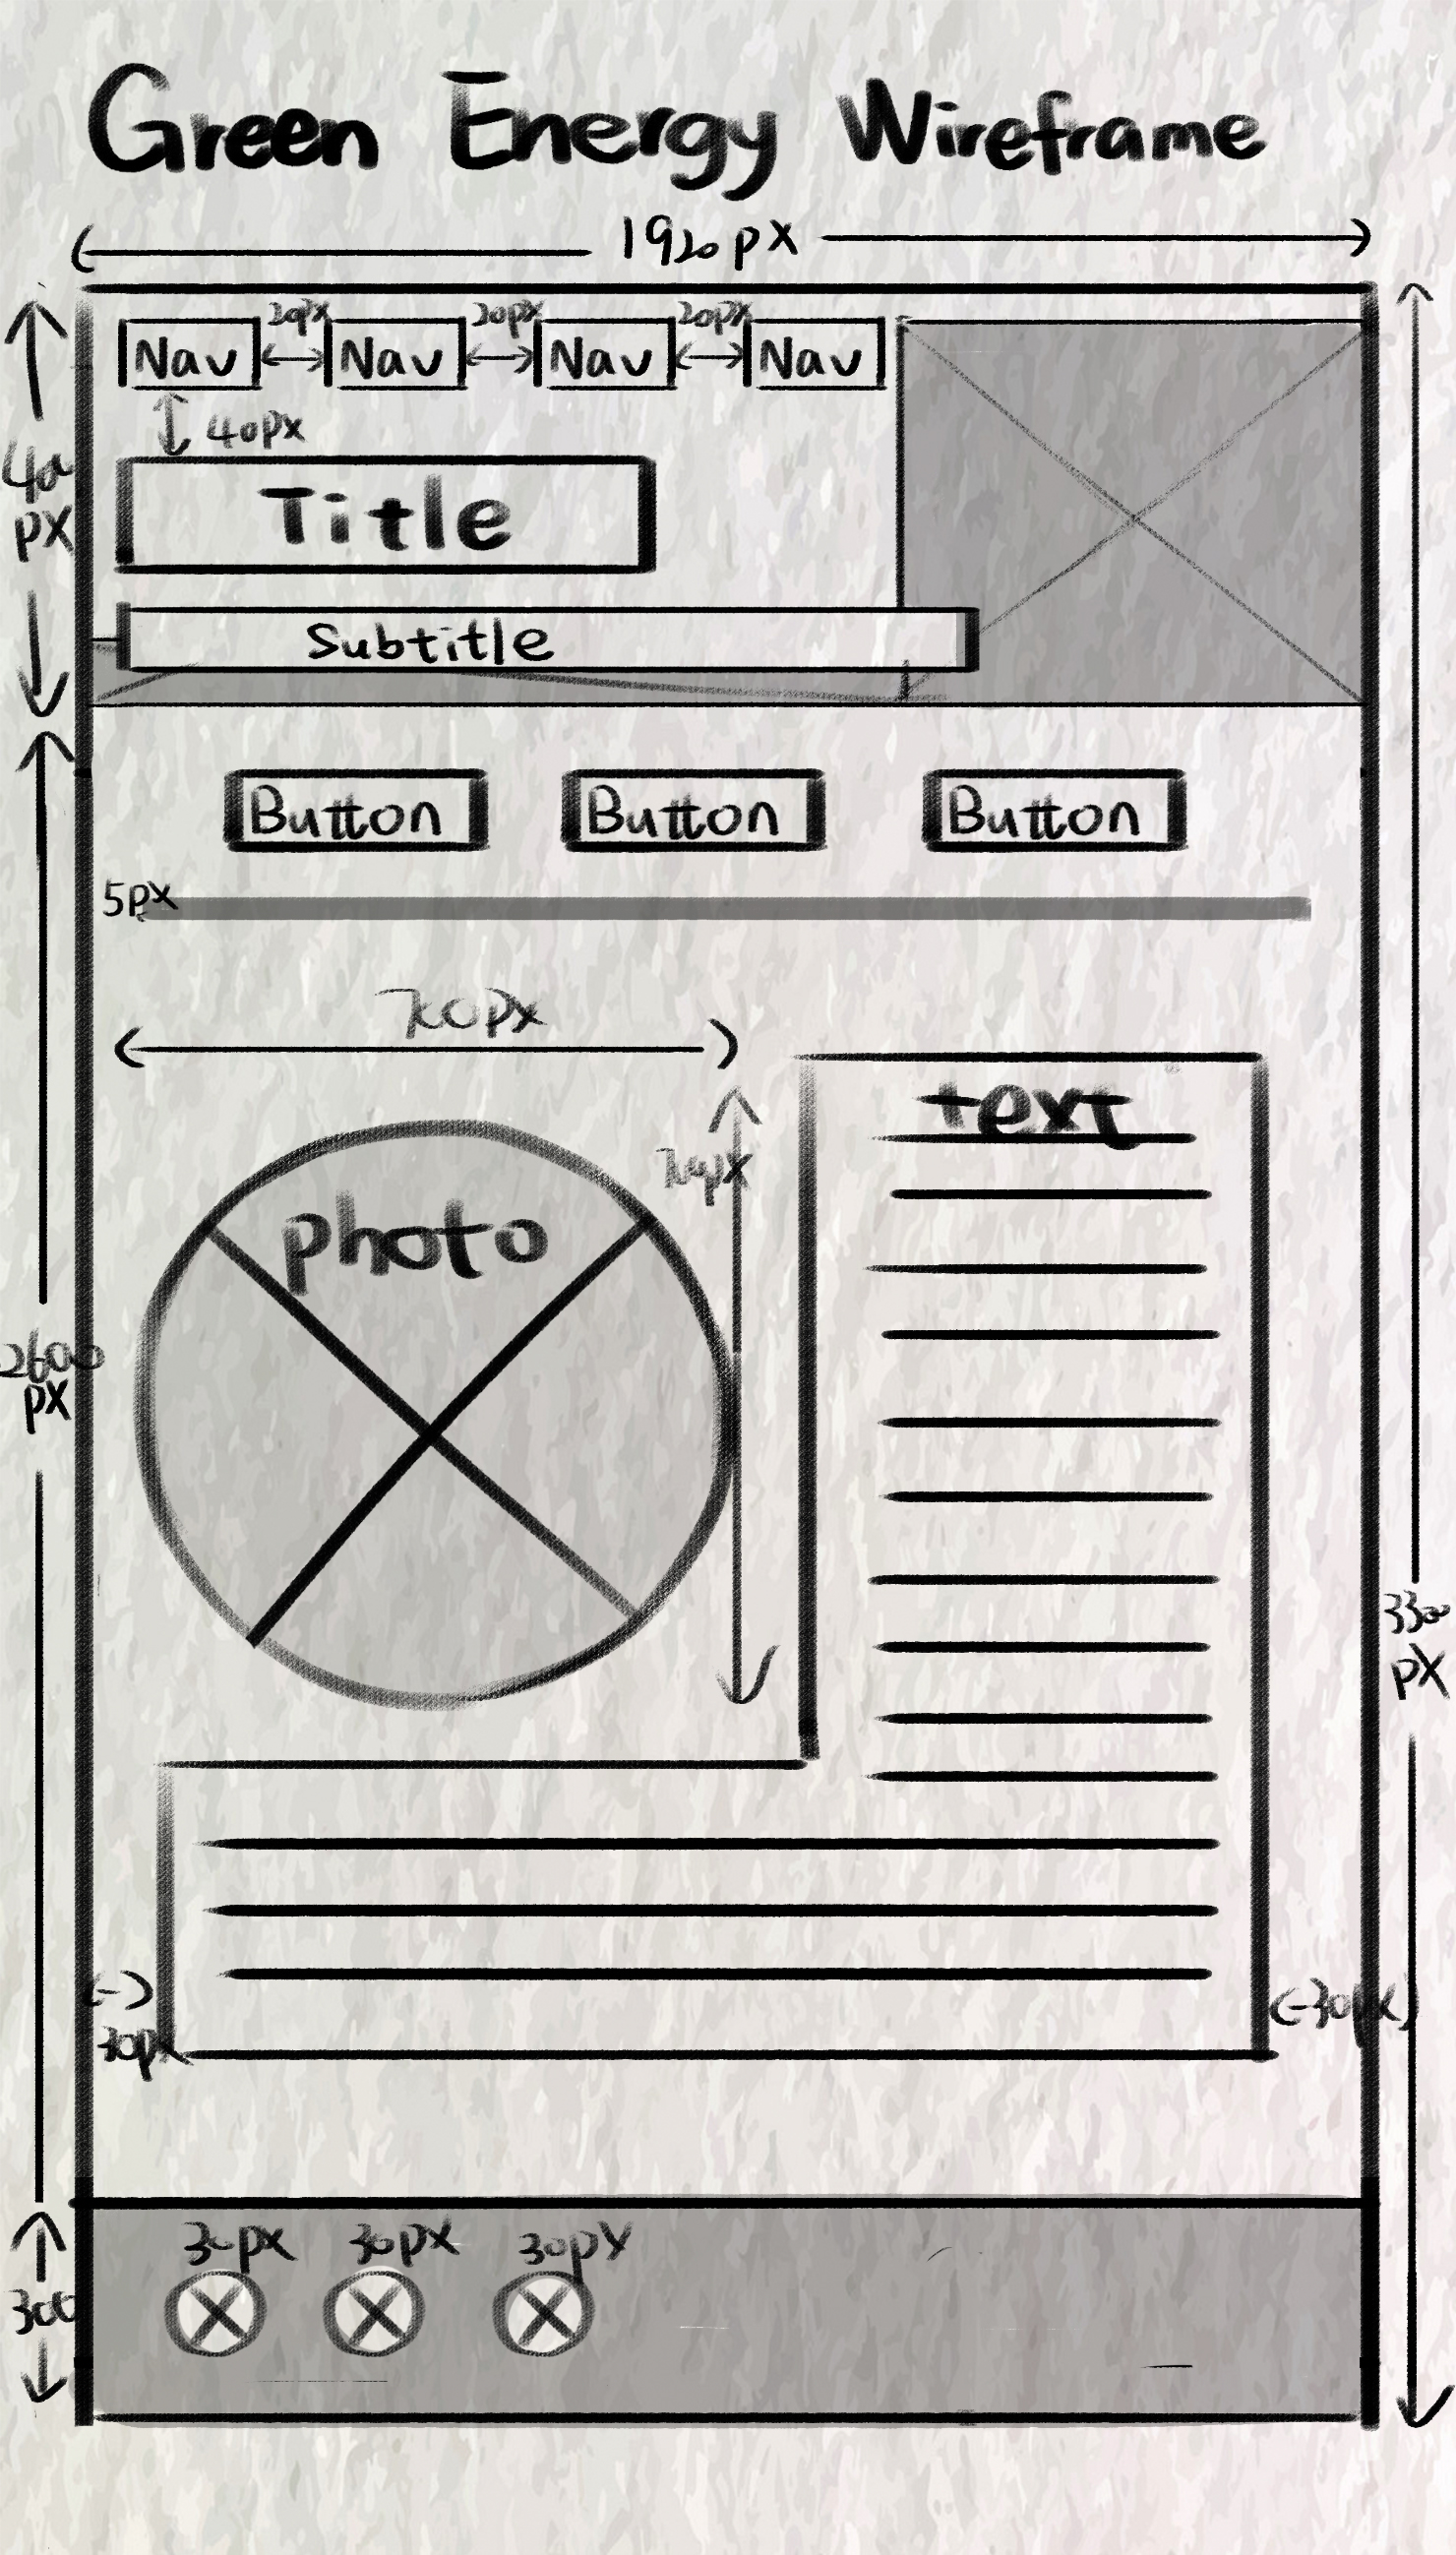 Green Energy Wireframe
1920px
20px 20px 20px
Nav Nav Nav Nav
40px
px
Title
Subtitle
Button Button Button
5px
700px
text
photo
2600
px
3300
px
30px
(-30px)
30px 30px 30px
300